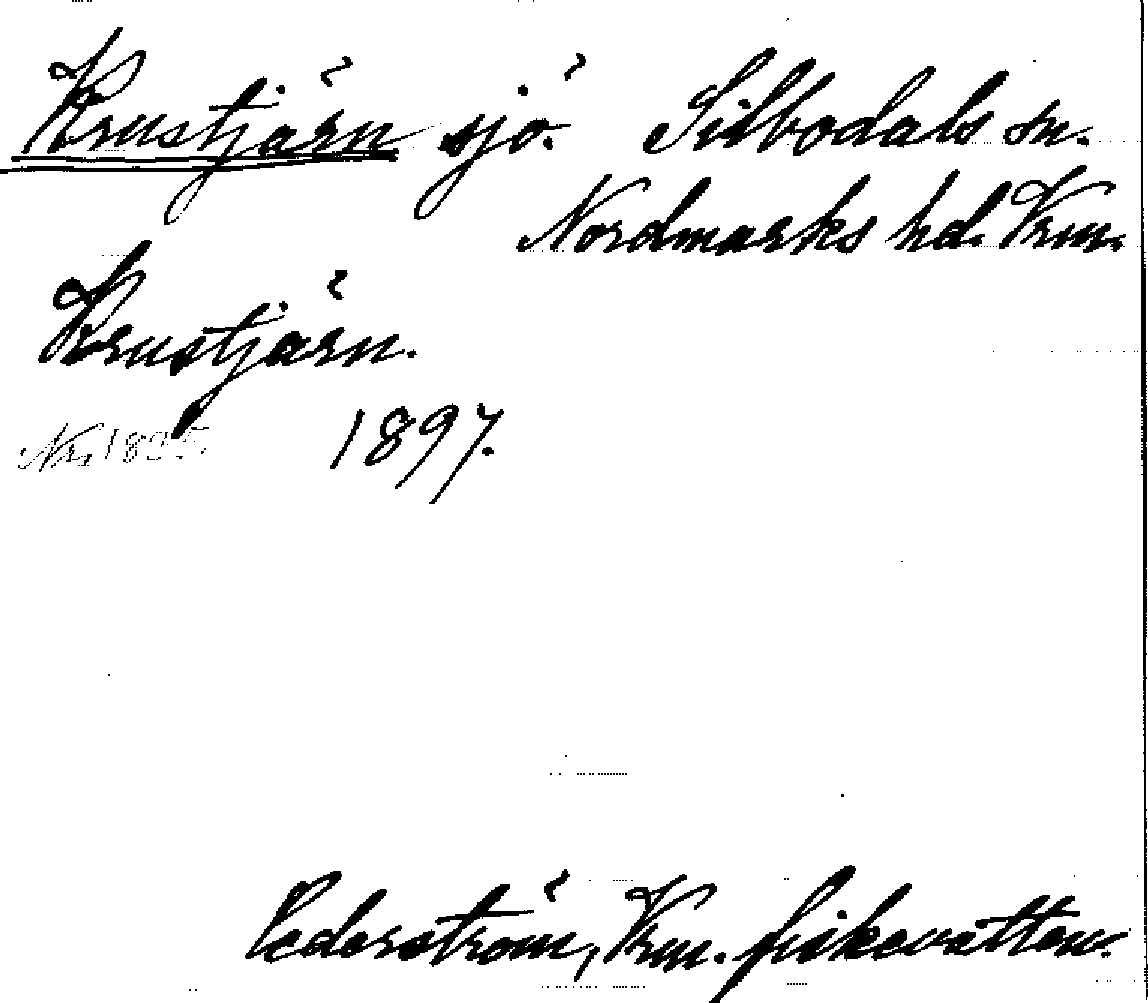 Krustjärn sjö. Silbodals sn.
Nordmarks hd. Vrm.
Krustjärn.
Nr. 1825. 1897.
Cederström, Vrm. fiskevatten.